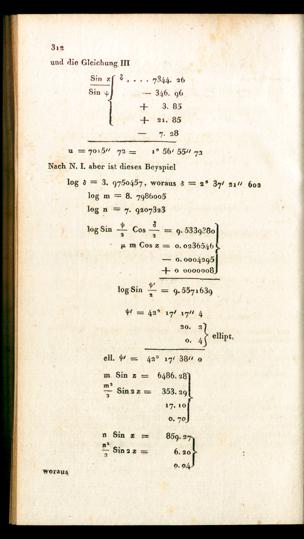 312
und die Gleichung III
Sin z { δ . . . . 7344. 26
Sin ψ − 346. 96
+ 3. 85
+ 21. 85
− 7. 28
u = 7015″ 72 = 1° 56′ 55″ 72
Nach N. I. aber ist dieses Beyspiel
log δ = 3. 9750457, woraus δ = 2° 37′ 21″ 602
log m = 8. 7986005
log n = 7. 9207323
log Sin ψ/2 Cos δ/2 = 9. 5339380
μ m Cos z = 0. 0236546
− 0. 0004295
+ 0 0000008
log Sin ψ′/2 = 9. 5571639
ψ′ = 42° 17′ 17″ 4
20. 2
0. 4 } ellipt.
ell. ψ′ = 42° 17′ 38″ 0
m Sin z = 6486. 28
m²/2 Sin 2 z = 353. 29
17. 10
0. 70
n Sin z = 859. 27
n²/2 Sin 2 z = 6. 20
0. 04
woraus